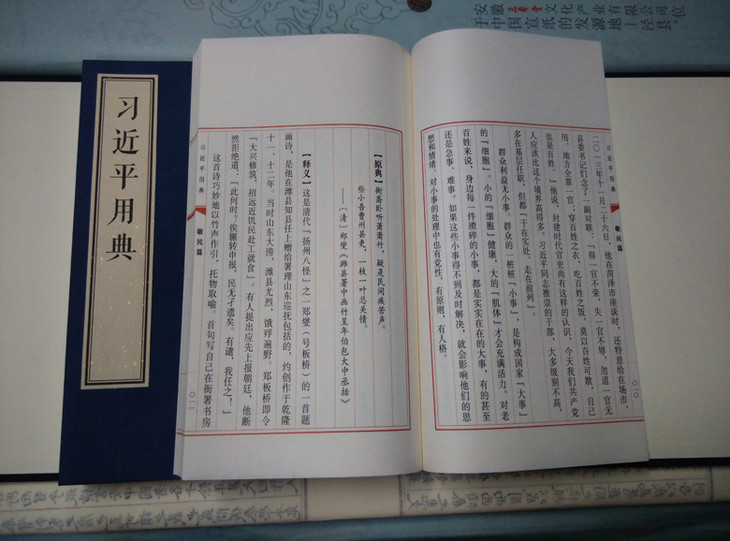 习近平用典
习近平用典
敬民篇
〇一〇
二〇一三年十一月二十六日，他在菏泽市座谈时，还特意给在场市、
县委书记们念了一副对联：『得一官不荣，失一官不辱，勿道一官无
用，地方全靠一官；穿百姓之衣，吃百姓之饭，莫以百姓可欺，自己
也是百姓。』他说，封建时代官吏尚有这样的认识，今天我们共产党
人应该比这个境界高得多。习近平同志推崇的干部，大多级别不高，
多在基层任职，但都『干在实处、走在前列』。
群众利益无小事。群众的一桩桩『小事』，是构成国家『大事』
的『细胞』，小的『细胞』健康，大的『肌体』才会充满活力。对老
百姓来说，身边每一件琐碎的小事，都是实实在在的大事，有的甚至
还是急事、难事。如果这些小事得不到及时解决，就会影响他们的思
想和情绪。对小事的处理中也有党性，有原则，有人格。
【原典】衙斋卧听萧萧竹，疑是民间疾苦声。
些小吾曹州县吏，一枝一叶总关情。
——〔清〕郑燮《潍县署中画竹呈年伯包大中丞括》
【释义】这是清代『扬州八怪』之一郑燮（号板桥）的一首题
画诗，是他在潍县知县任上赠给署理山东巡抚包括的，约创作于乾隆
十一、十二年。当时山东大涝，潍县尤烈，饿殍遍野。郑板桥即令
『大兴修筑，招远近饥民赴工就食』。有人提出应先上报朝廷，他断
然拒绝道：『此何时？俟辗转申报，民无孑遗矣。有谴，我任之！』
这首诗巧妙地以竹声作引，托物取喻。首句写自己在衙署书房
习近平用典
敬民篇
〇一一
安徽 文化产业有限公司位
于中国宣纸的发源地 泾县。